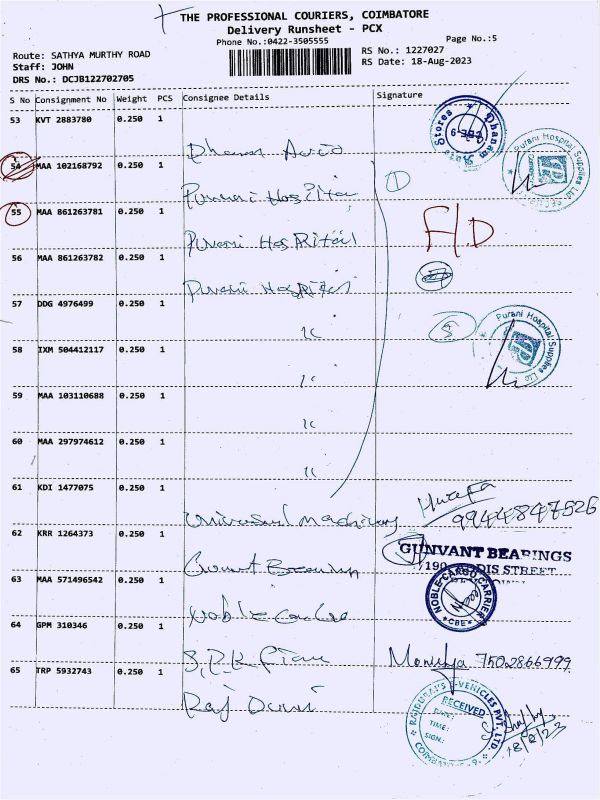 THE PROFESSIONAL COURIERS, COIMBATORE
Delivery Runsheet - PCX
Phone No.:0422-3505555
Page No.:5
Route: SATHYA MURTHY ROAD
Staff: JOHN
DRS No.: DCJB122702705
RS No.: 1227027
RS Date: 18-Aug-2023
S No Consignment No Weight PCS Consignee Details Signature
53 KVT 2883780 0.250 1
54 MAA 102168792 0.250 1
Purani Hospital
55 MAA 861263781 0.250 1
Purani Hospital
56 MAA 861263782 0.250 1
Purani Hospital
57 DDG 4976499 0.250 1
58 IXM 504412117 0.250 1
59 MAA 103110688 0.250 1
60 MAA 297974612 0.250 1
61 KDI 1477075 0.250 1
Universal Machinery
9944847526
62 KRR 1264373 0.250 1
GUNVANT BEARINGS
STREET
63 MAA 571496542 0.250 1
Noble
NOBLE CARGO CARRIER
CBE
64 GPM 310346 0.250 1
S.P.K
7502866999
65 TRP 5932743 0.250 1
Raj
Stores Dhanam
Purani Hospital Supplies Ltd
H.D
5
Purani Hospital Supplies Ltd
E-VEHICLES PVT. LTD.
RECEIVED
DATE:
TIME:
SIGN.:
18/8/23